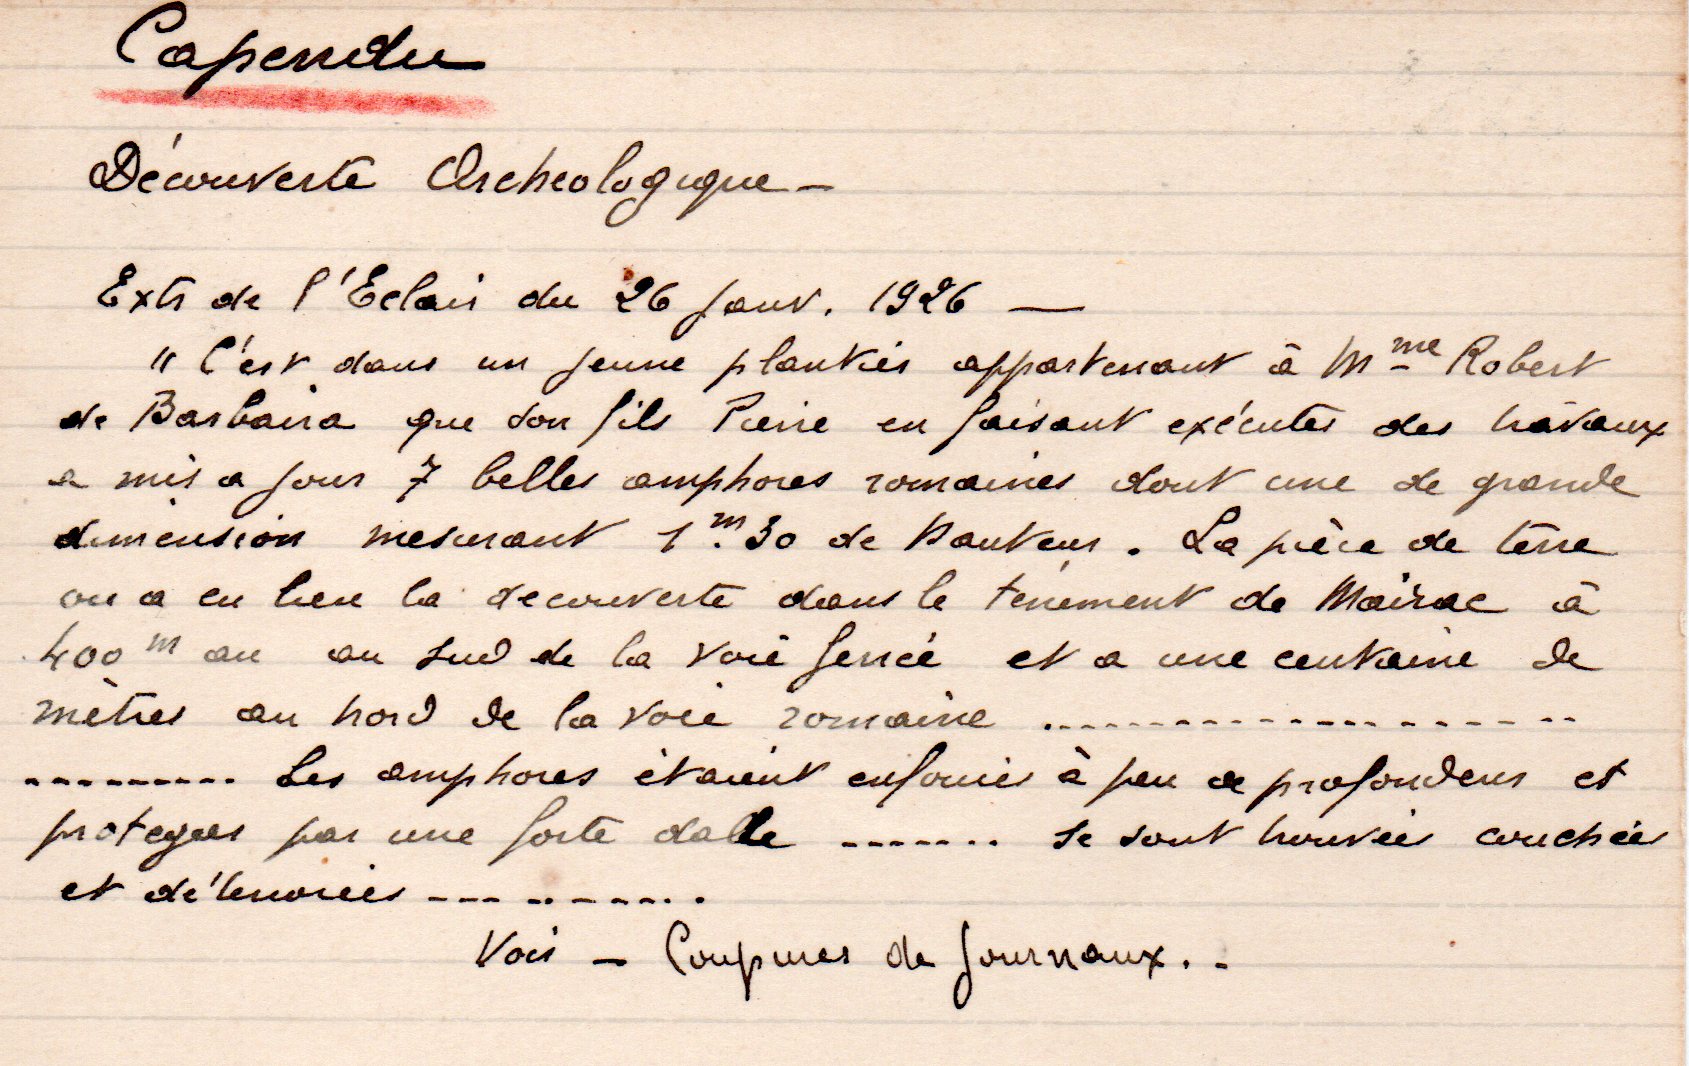 Capendu
Découverte Archeologique -
Extr de l'Eclair du 26 Janv. 1926 —
" C'est dans un jeune plantier appartenant à Mme Robert
de Barbaira que son fils Pierre en faisant exécuter des travaux
a mis a jour 7 belles amphores romaines dont une de grande
dimension mesurant 1m.30 de hauteur. La pièce de terre
ou a eu lieu la decouverte dans le tenement de Mairac à
400 m au au sud de la voie ferrée et a une centaine de
mètres au nord de la voie romaine ....................
--------- Les amphores étaient enfouies à peu de profondeur et
protegees par une forte dalle ------- se sont trouvées couchées
et détériorées ----------
Voir - Coupures de journaux. -